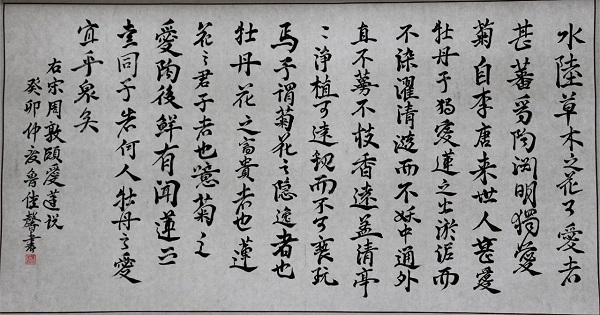 水陸草木之花可愛者
甚蕃晉陶淵明獨愛
菊自李唐来世人甚愛
牡丹予独愛蓮之出淤泥而
不染濯清漣而不妖中通外
直不蔓不枝香遠益清亭
〻淨植可遠觀而不可亵玩
焉予謂菊花之隐逸者也
牡丹花之富貴者也蓮
花之君子者也噫菊之
愛陶後鮮有聞蓮之
愛同予者何人牡丹之愛
宜乎衆矣
右宋周敦頤愛蓮説
癸卯仲夏魯佳馨書